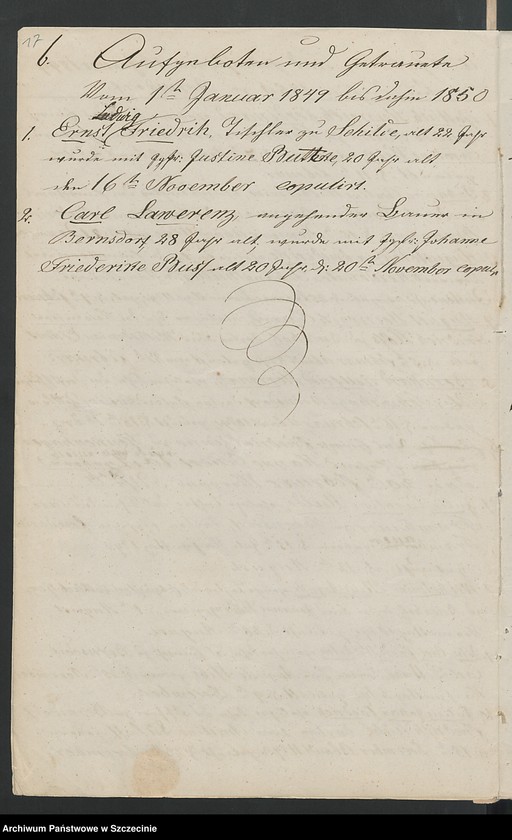 17
6. Aufgeboten und Getrauete
Vom 1th Januar 1849 bis dahin 1850
Ludwig
1. Ernst Friedrih, Tischler zu Schilde, alt 22 Jahr
wurde mit Jgfr: Justine Buthke, 20 Jahr alt
den 16th November copulirt.
2. Carl Lawerenz, angehender Bauer in
Bernsdorf 28 Jahr alt, wurde mit Jgfr: Johanne
Friederike Buss alt 20 Jahr d: 20th November copul.
Archiwum Państwowe w Szczecinie